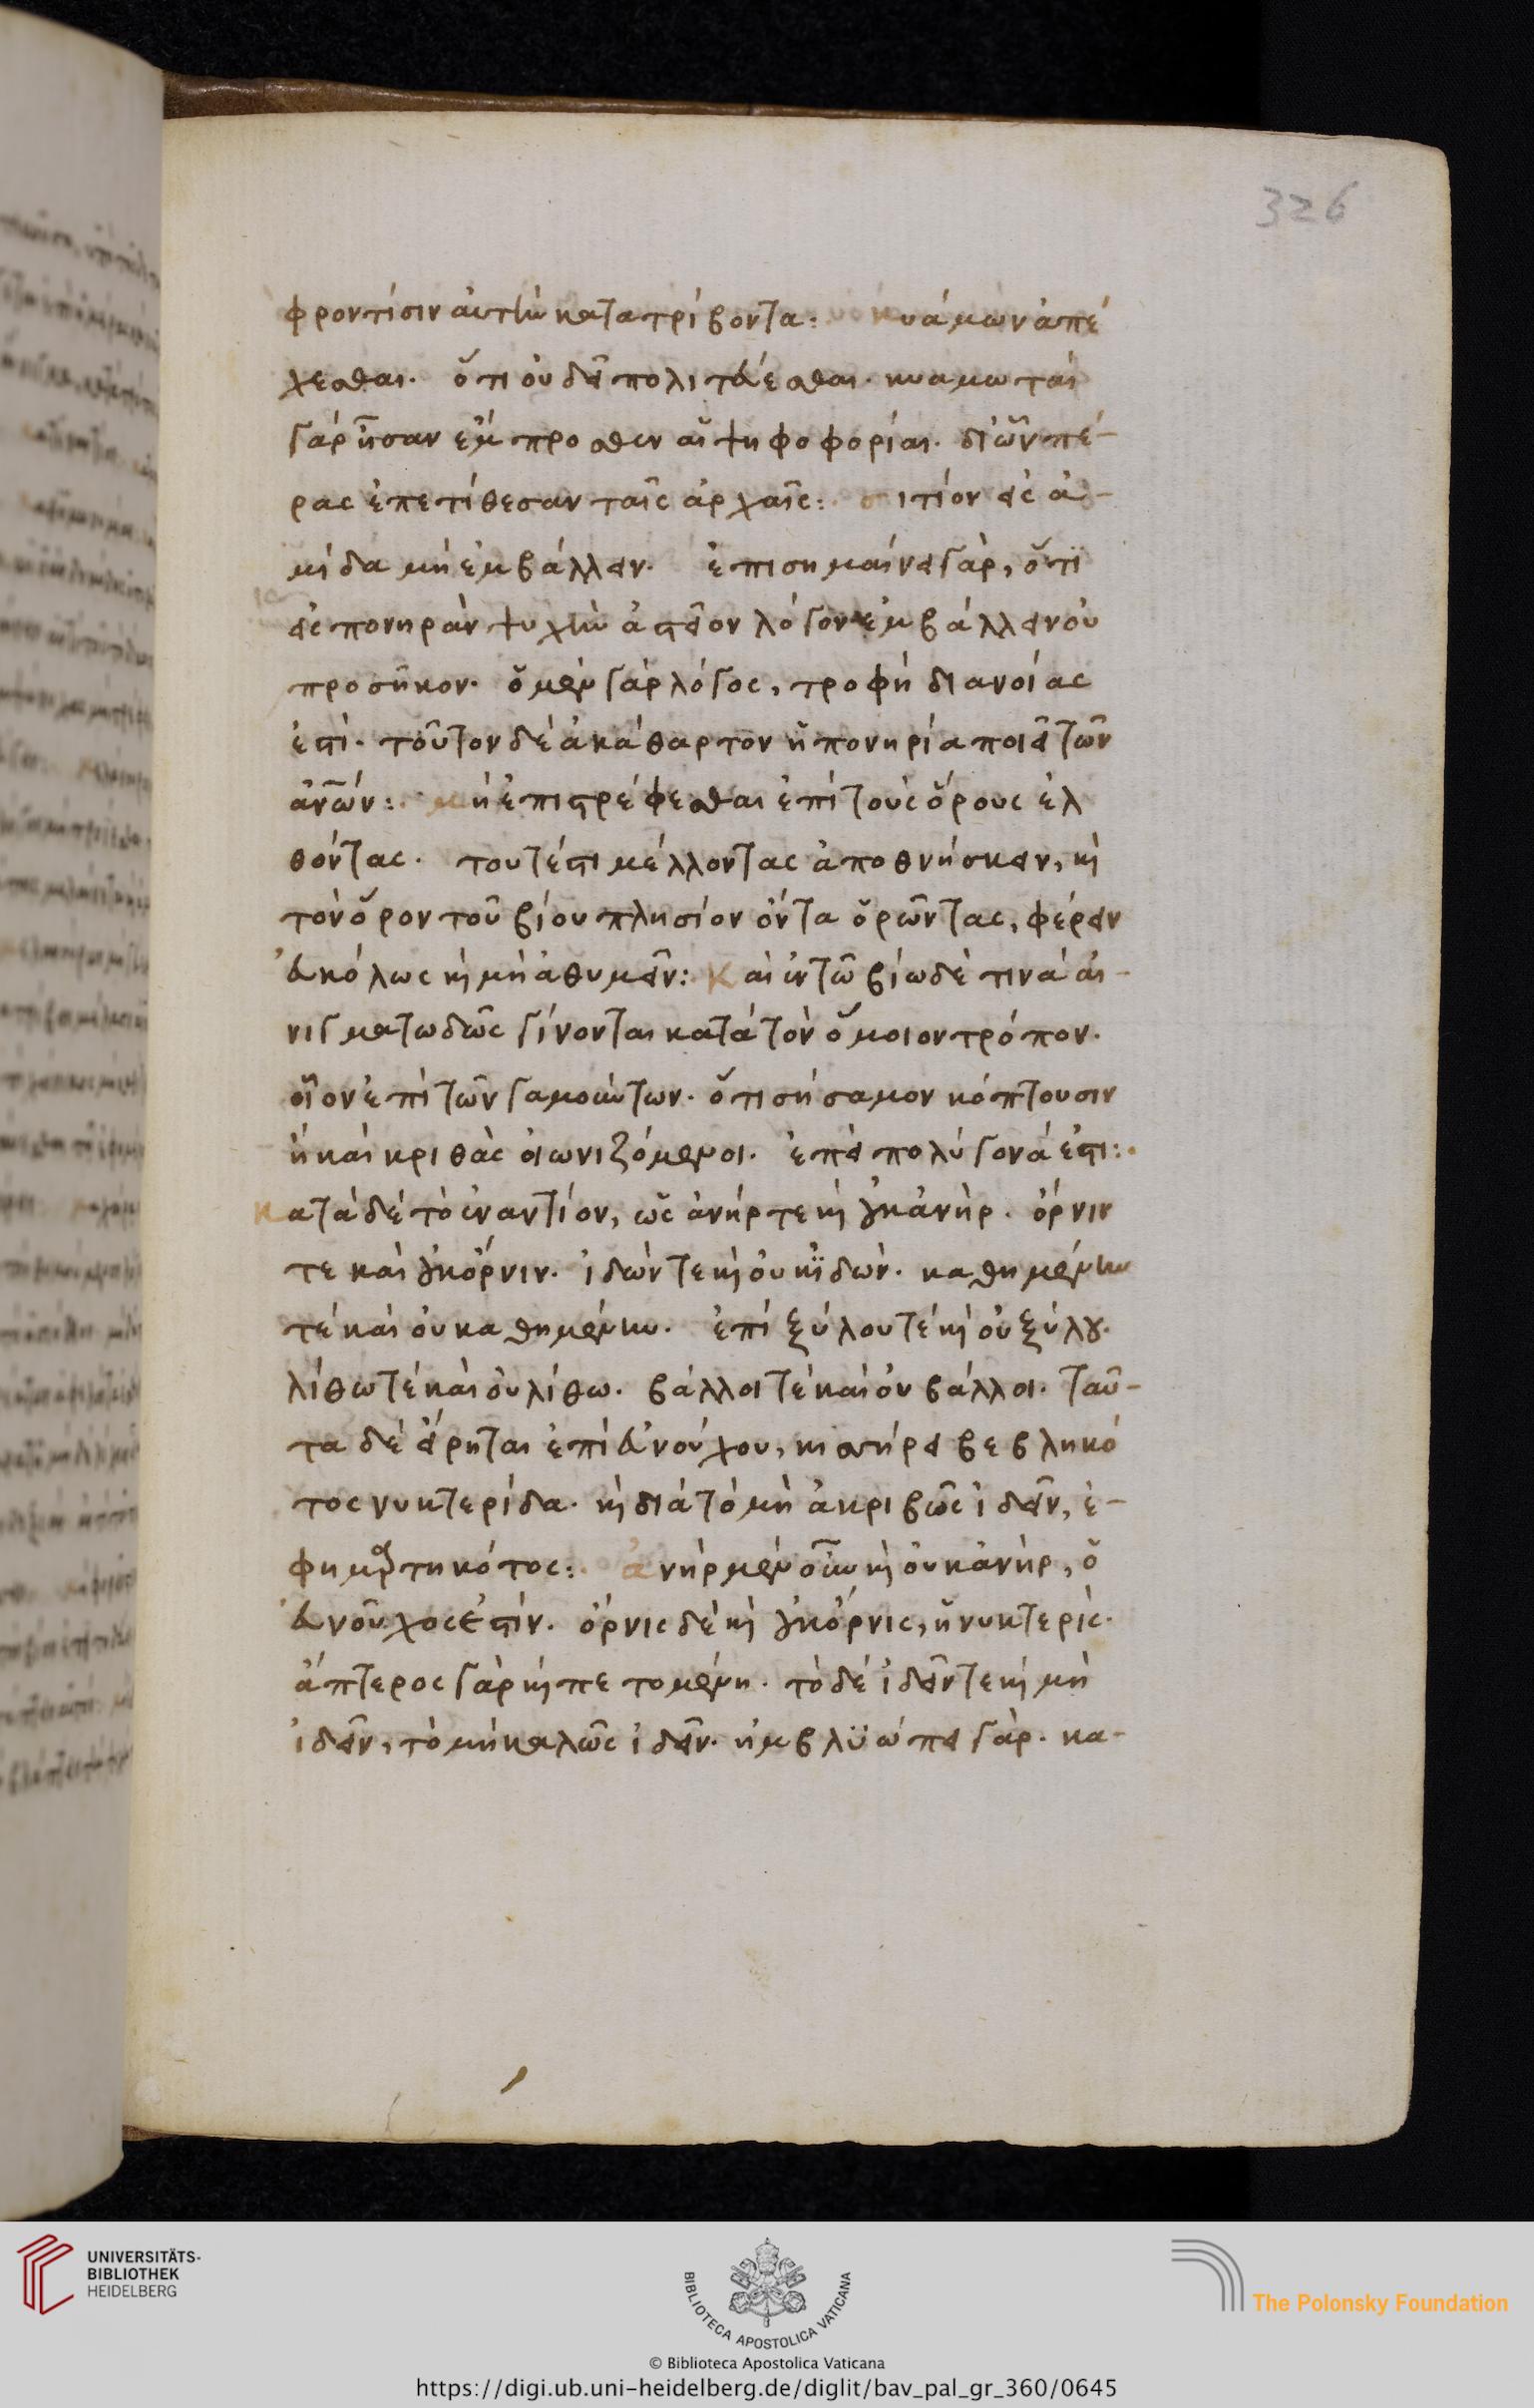 326
φροντίσιν αὐτὴν κατατρίβοντα: κυάμων ἀπέ
χεσθαι. ὅτι οὐ δεῖ πολιτεύεσθαι. κυαμωταὶ
γάρ ἦσαν ἔμπροσθεν αἱ ψηφοφορίαι. δι' ὧν πέ-
ρας ἐπετίθεσαν ταῖς ἀρχαῖς: σιτίον εἰς ἀ-
μίδα μὴ ἐμβάλλειν. ἐπισημαίνει γὰρ, ὅτι
εἰς πονηρὰν ψυχὴν ἀστεῖον λόγον ἐμβάλλειν οὐ
προσῆκον. ὁ μὲν γὰρ λόγος, τροφὴ διανοίας
ἐστί. τοῦτον δὲ ἀκάθαρτον ἡ πονηρία ποιεῖ τῶν
ἀνῶν: μὴ ἐπιστρέφεσθαι ἐπὶ τοὺς ὅρους ἐλ
θόντας. τουτέστι μέλλοντας ἀποθνήσκειν, κὶ
τὸν ὅρον τοῦ βίου πλησίον ὄντα ὁρῶντας, φέρειν
εὐκόλως κὶ μὴ ἀθυμεῖν: Καὶ ἐν τῶ βίω δὲ τινὰ αἰ-
νιγματωδῶς γίνονται κατὰ τὸν ὅμοιον τρόπον.
οἷον ἐπὶ τῶν γαμούντων. ὅτι σήσαμον κόπτουσιν
ἢ καὶ κριθὰς οἰωνιζόμενοι. ἐπεὶ πολύγονά ἐστι:
κατὰ δὲ τὸ ἐναντίον, ὡς ἀνήρ τε κὶ οὐκ ἀνὴρ. ὄρνιν
τε καὶ οὐκ ὄρνιν. ἰδών τε κὶ οὐκ ϊδών. καθημένην
τέ καὶ οὐ καθημένην. ἐπὶ ξύλου τέ κὶ οὐ ξύλου.
λίθω τέ καὶ οὐ λίθω. βάλλοι τέ καὶ οὐ βάλλοι. ταῦ-
τα δὲ εἴρηται ἐπὶ εὐνούχου, κισσήρει βεβληκό
τος νυκτερίδα. κὶ διὰ τὸ μὴ ἀκριβῶς ἰδεῖν, ἐ-
φημαρτηκότος: ἀνὴρ μὲν οὖν κὶ οὐκ ἀνὴρ, ὁ
εὐνοῦχος ἐστίν. ὄρνις δὲ κὶ οὐκ ὄρνις, ἡ νυκτερὶς.
ἄπτερος γὰρ κὶ πετομένη. τὸ δὲ ἰδεῖν τε κὶ μὴ
ἰδεῖν, τὸ μὴ καλῶς ἰδεῖν. ἠμβλϋώπει γὰρ. κα-
UNIVERSITÄTS-
BIBLIOTHEK
HEIDELBERG
BIBLIOTECA APOSTOLICA VATICANA
The Polonsky Foundation
© Biblioteca Apostolica Vaticana
https://digi.ub.uni-heidelberg.de/diglit/bav_pal_gr_360/0645